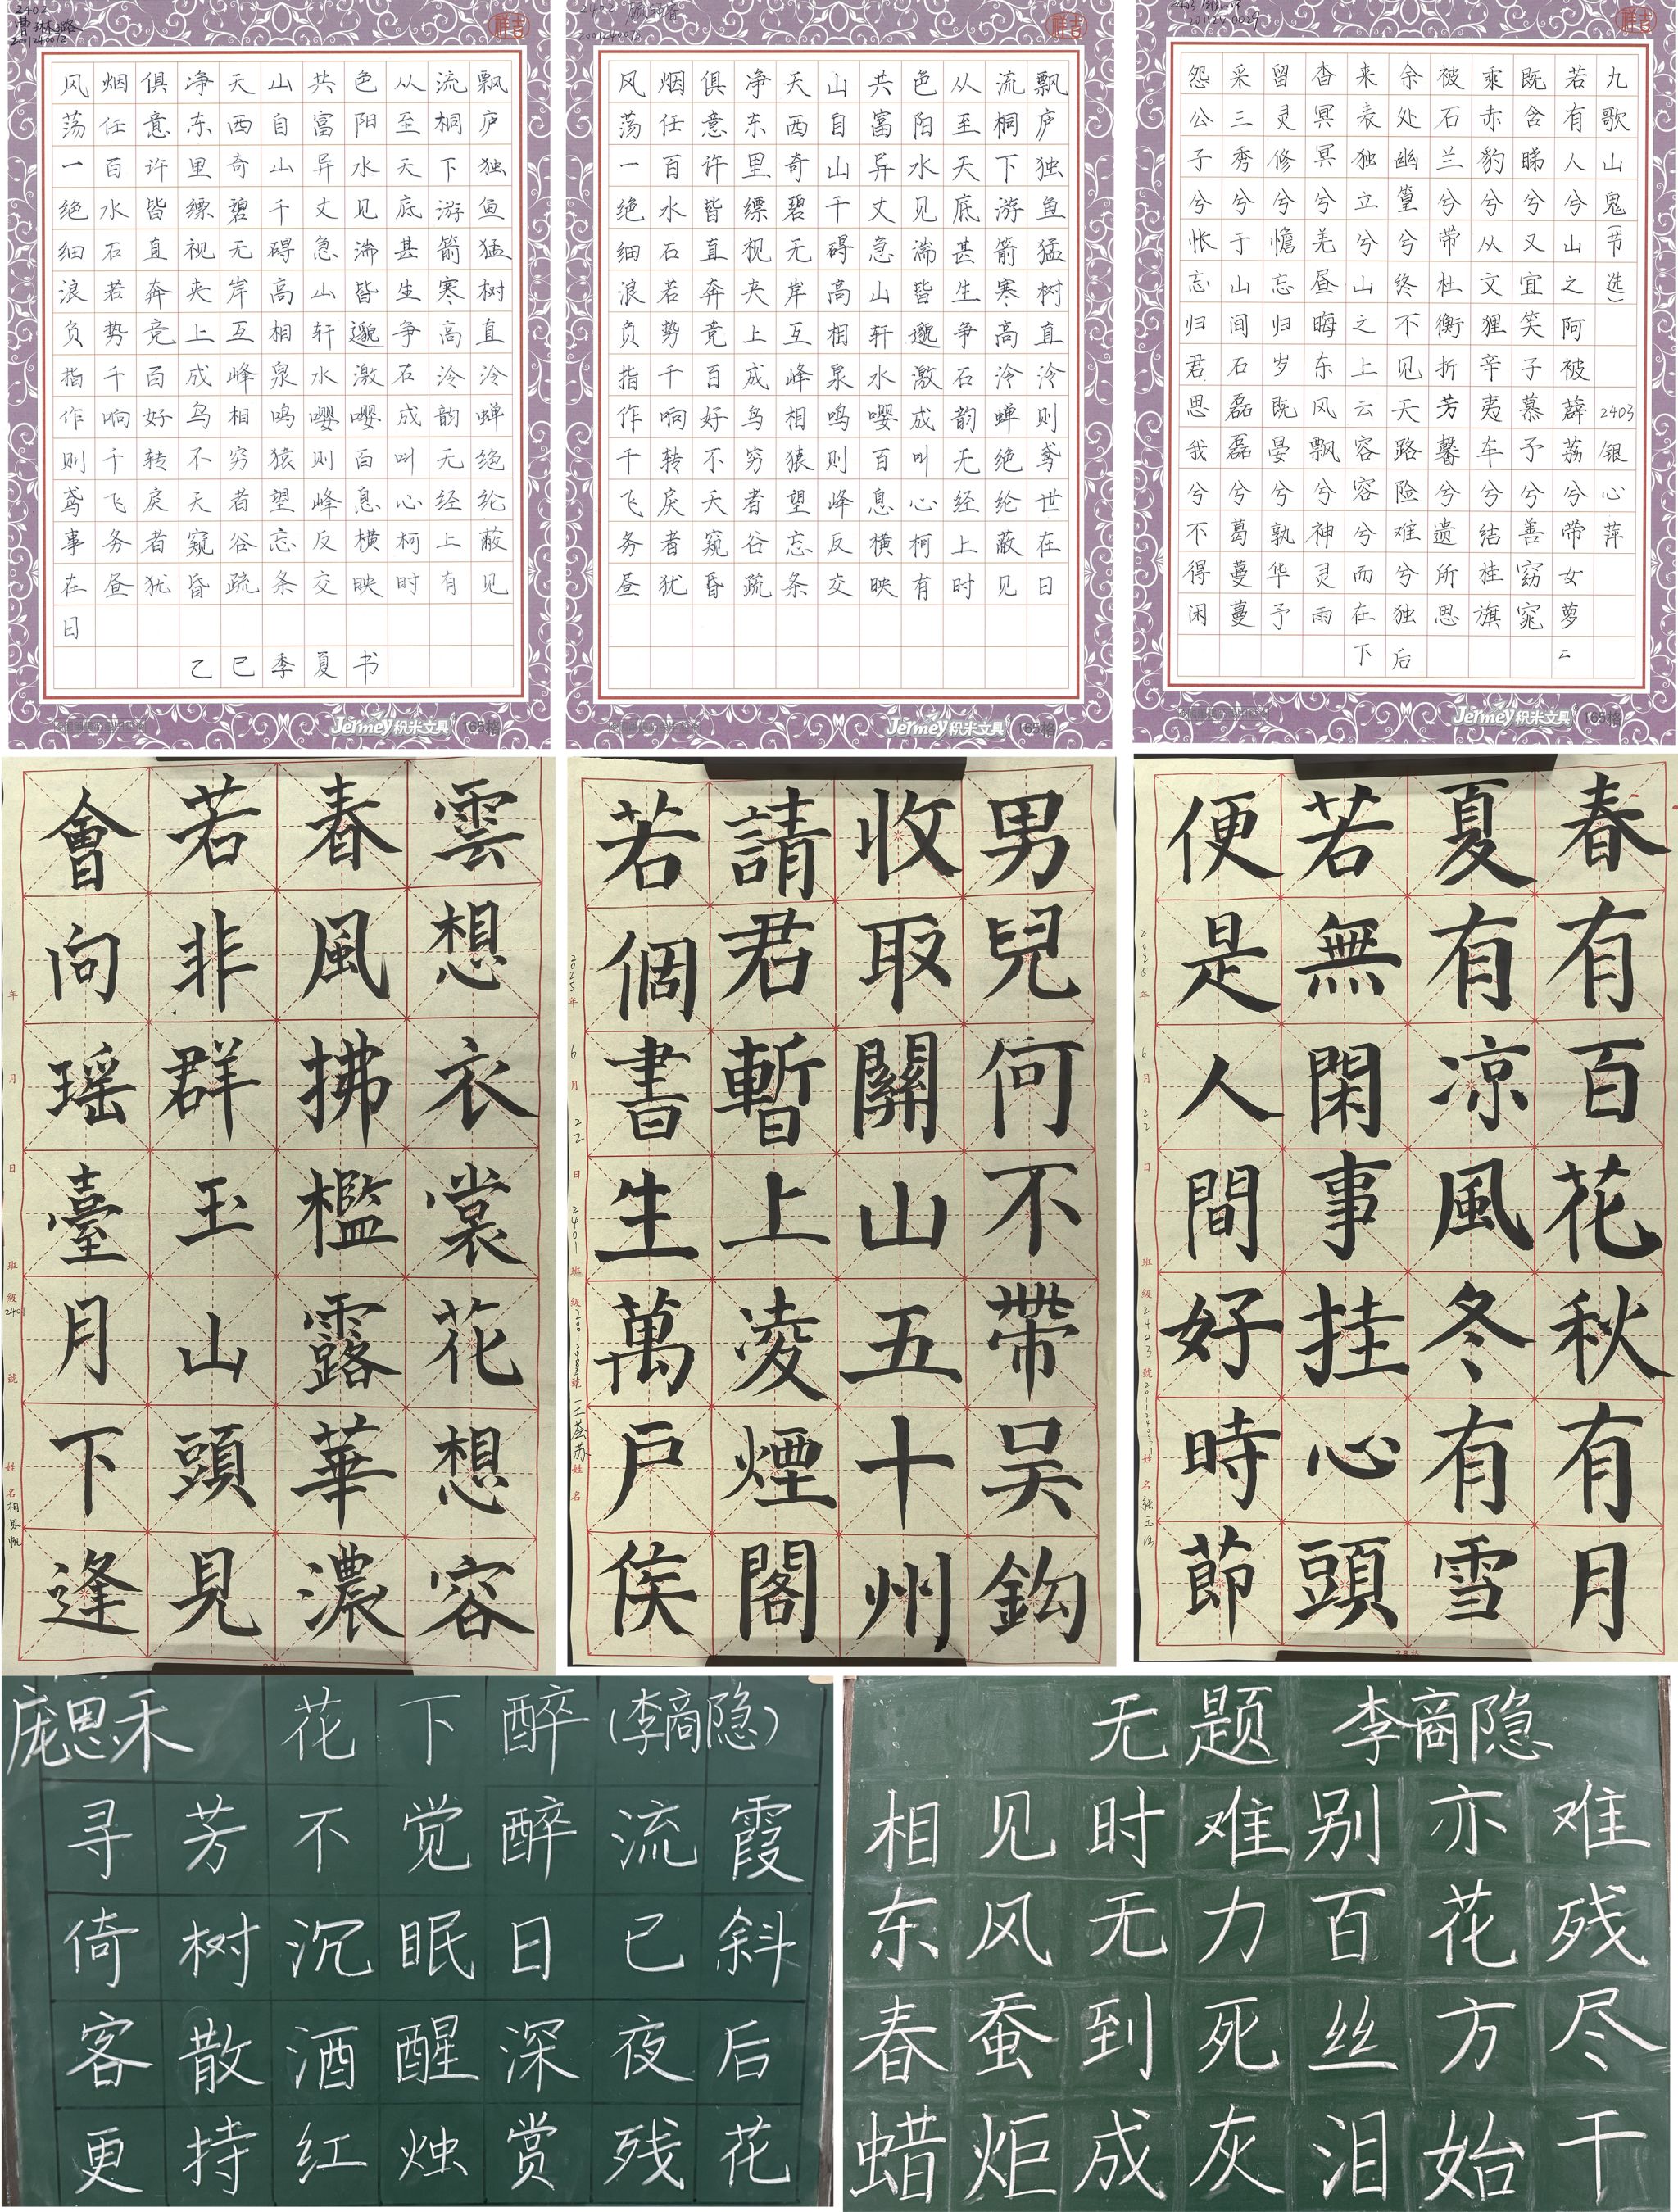 2402
曹琳璐
风烟俱净天山共色从流飘
荡任意东西自富阳至桐庐
一百许里奇山异水天下独
绝水皆缥碧千丈见底游鱼
细石直视无碍急湍甚箭猛
浪若奔夹岸高山皆生寒树
负势竞上互相轩邈争高直
指千百成峰泉水激石泠泠
作响好鸟相鸣嘤嘤成韵蝉
则千转不穷猿则百叫无绝
鸢飞戾天者望峰息心经纶
事务者窥谷忘反横柯上蔽
在昼犹昏疏条交映时有见
日
乙巳季夏书
Jermey积米文具 165格
吉祥
风烟俱净天山共色从流飘
荡任意东西自富阳至桐庐
一百许里奇山异水天下独
绝水皆缥碧千丈见底游鱼
细石直视无碍急湍甚箭猛
浪若奔夹岸高山皆生寒树
负势竞上互相轩邈争高直
指千百成峰泉水激石泠泠
作响好鸟相鸣嘤成韵蝉则
千转不穷猿则百叫无绝鸢
飞戾天者望峰息心经纶世
务者窥谷忘反横柯上蔽在
昼犹昏疏条交映有时见日
Jermey积米文具 165格
吉祥
九歌山鬼(节选) 2403银心萍
若有人兮山之阿被薜荔兮带女萝二
既含睇兮又宜笑子慕予兮善窈窕
乘赤豹兮从文狸辛夷车兮结桂旗
被石兰兮带杜衡折芳馨兮遗所思
余处幽篁兮终不见天路险难兮独后
来表独立兮山之上云容容兮而在下
杳冥冥兮羌昼晦东风飘兮神灵雨
留灵修兮憺忘归岁既晏兮孰华予
采三秀兮于山间石磊磊兮葛蔓蔓
怨公子兮怅忘归君思我兮不得闲
Jermey积米文具 165格
吉祥
雲想衣裳花想容
春風拂檻露華濃
若非群玉山頭見
會向瑶臺月下逢
年月日班級2401號姓名
男兒何不帶吴鈎
收取關山五十州
請君暫上凌煙閣
若個書生萬户侯
2025年6月22日2401班級
春有百花秋有月
夏有凉風冬有雪
若無閑事挂心頭
便是人間好時節
2025年6月22日班級2403號
庞思禾 花下醉(李商隐)
寻芳不觉醉流霞
倚树沉眠日已斜
客散酒醒深夜后
更持红烛赏残花
无题 李商隐
相见时难别亦难
东风无力百花残
春蚕到死丝方尽
蜡炬成灰泪始干